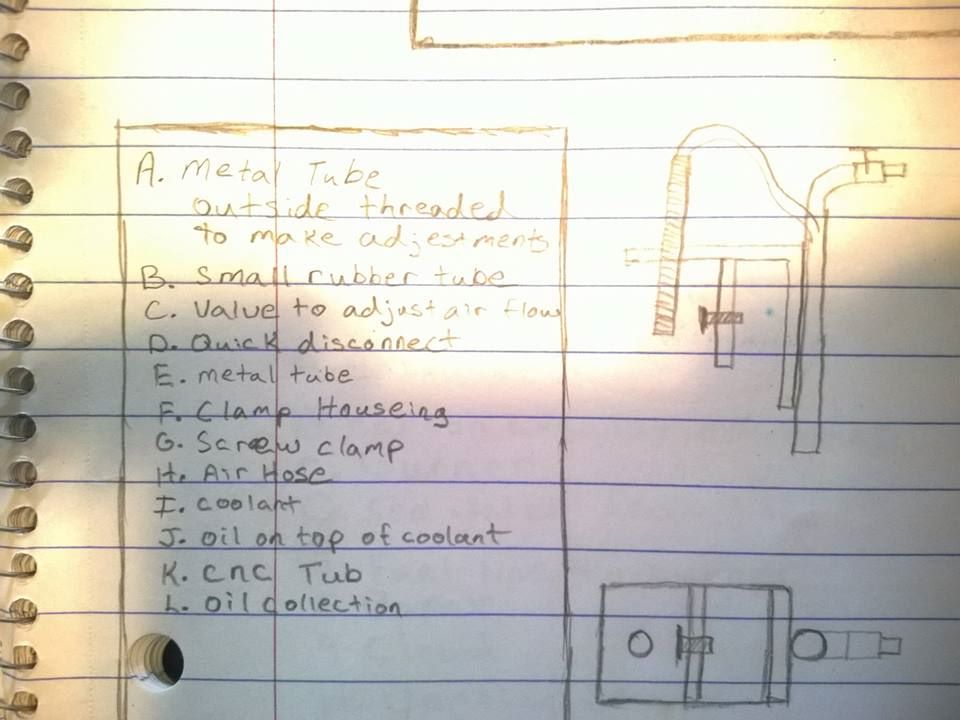 A. Metal Tube
outside threaded
to make adjestments
B. Small rubber tube
C. Value to adjust air flow
D. Quick disconnect
E. metal tube
F. Clamp Houseing
G. Screw clamp
H. Air Hose
I. coolant
J. oil on top of coolant
K. cnc Tub
L. Oil collection